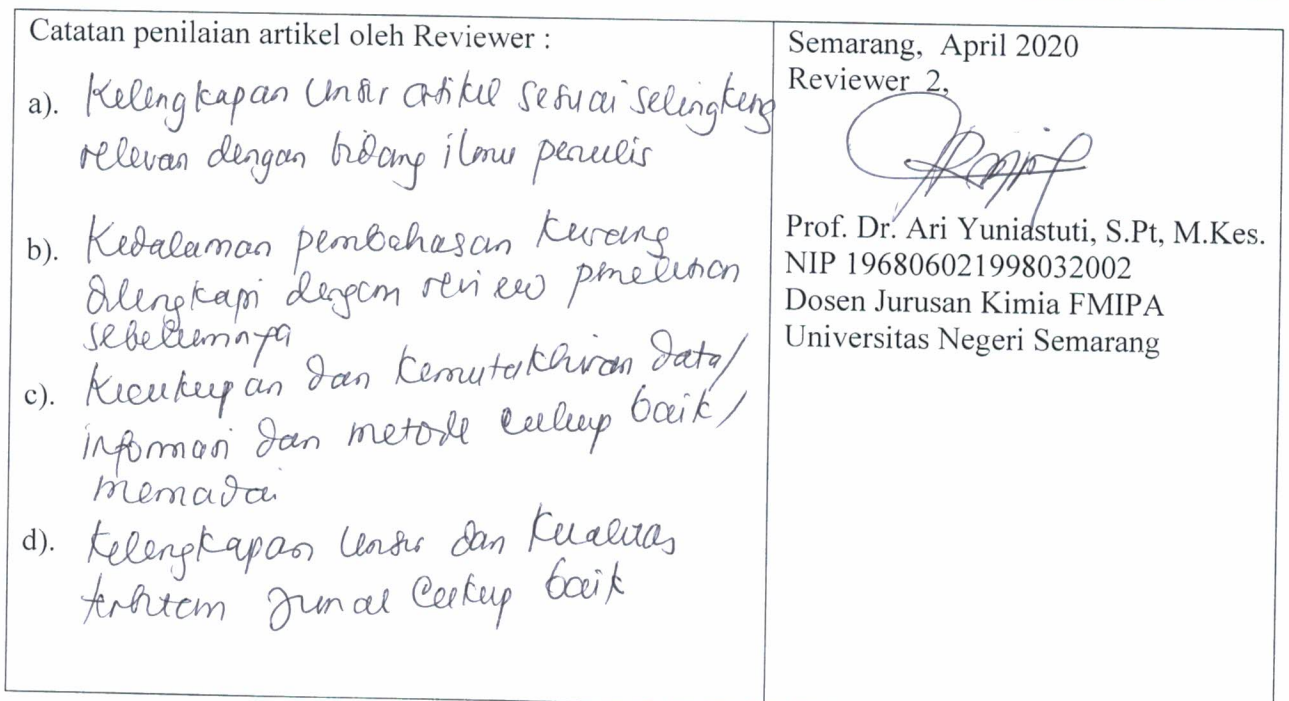 Catatan penilaian artikel oleh Reviewer :
a). Kelengkapan Unsur artikel sesuai selingkung
relevan dengan bidang ilmu penulis
b). Kedalaman pembahasan kurang
dilengkapi dengan review penelitian
sebelumnya
c). Kecukupan dan Kemutakhiran data/
informasi dan metode cukup baik/
memadai
d). Kelengkapan Unsur dan Kualitas
terbitan Jurnal Cukup baik
Semarang, April 2020
Reviewer 2,
Prof. Dr. Ari Yuniastuti, S.Pt, M.Kes.
NIP 196806021998032002
Dosen Jurusan Kimia FMIPA
Universitas Negeri Semarang